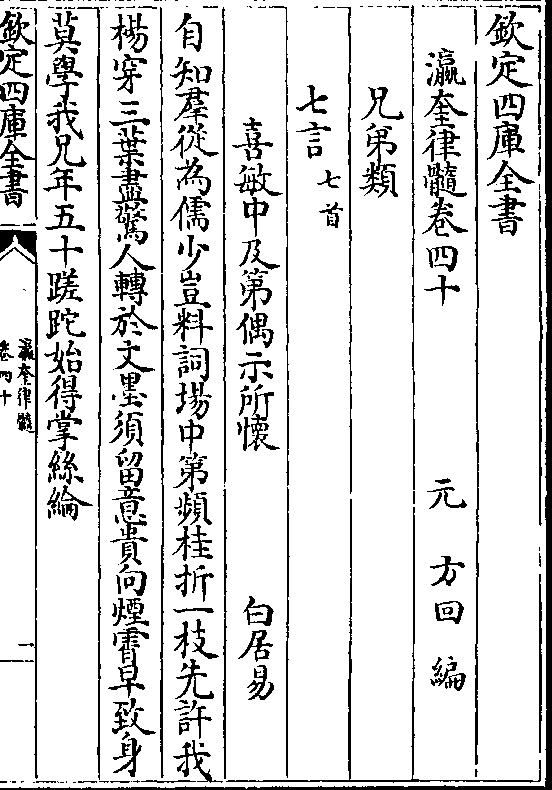 欽定四庫全書
瀛奎律髓卷四十
元 方回 編
兄弟類
七言 七首
喜敏中及第偶示所懷 白居易
自知羣從為儒少豈料詞場中第頻桂折一枝先許我
楊穿三葉盡驚人轉於文墨須留意貴向煙霄早致身
莫學我兄年五十蹉跎始得掌絲綸
欽定四庫全書
瀛奎律髓
卷四十
一